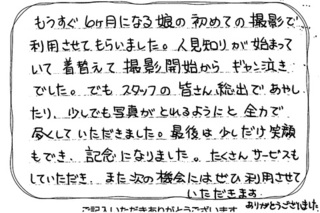 もうすぐ6ヶ月になる娘の初めての撮影で
利用させてもらいました。人見知りが始まって
いて着替えて撮影開始からギャン泣き
でした。でもスタッフの皆さん総出であやし
たり、少しでも写真がとれるようにと全力で
尽くしていただきました。最後は少しだけ笑顔
もでき、記念になりました。たくさんサービスも
していただき、また次の機会にはぜひ利用させて
いただきます。
ありがとうございました。
ご記入いただきありがとうございます